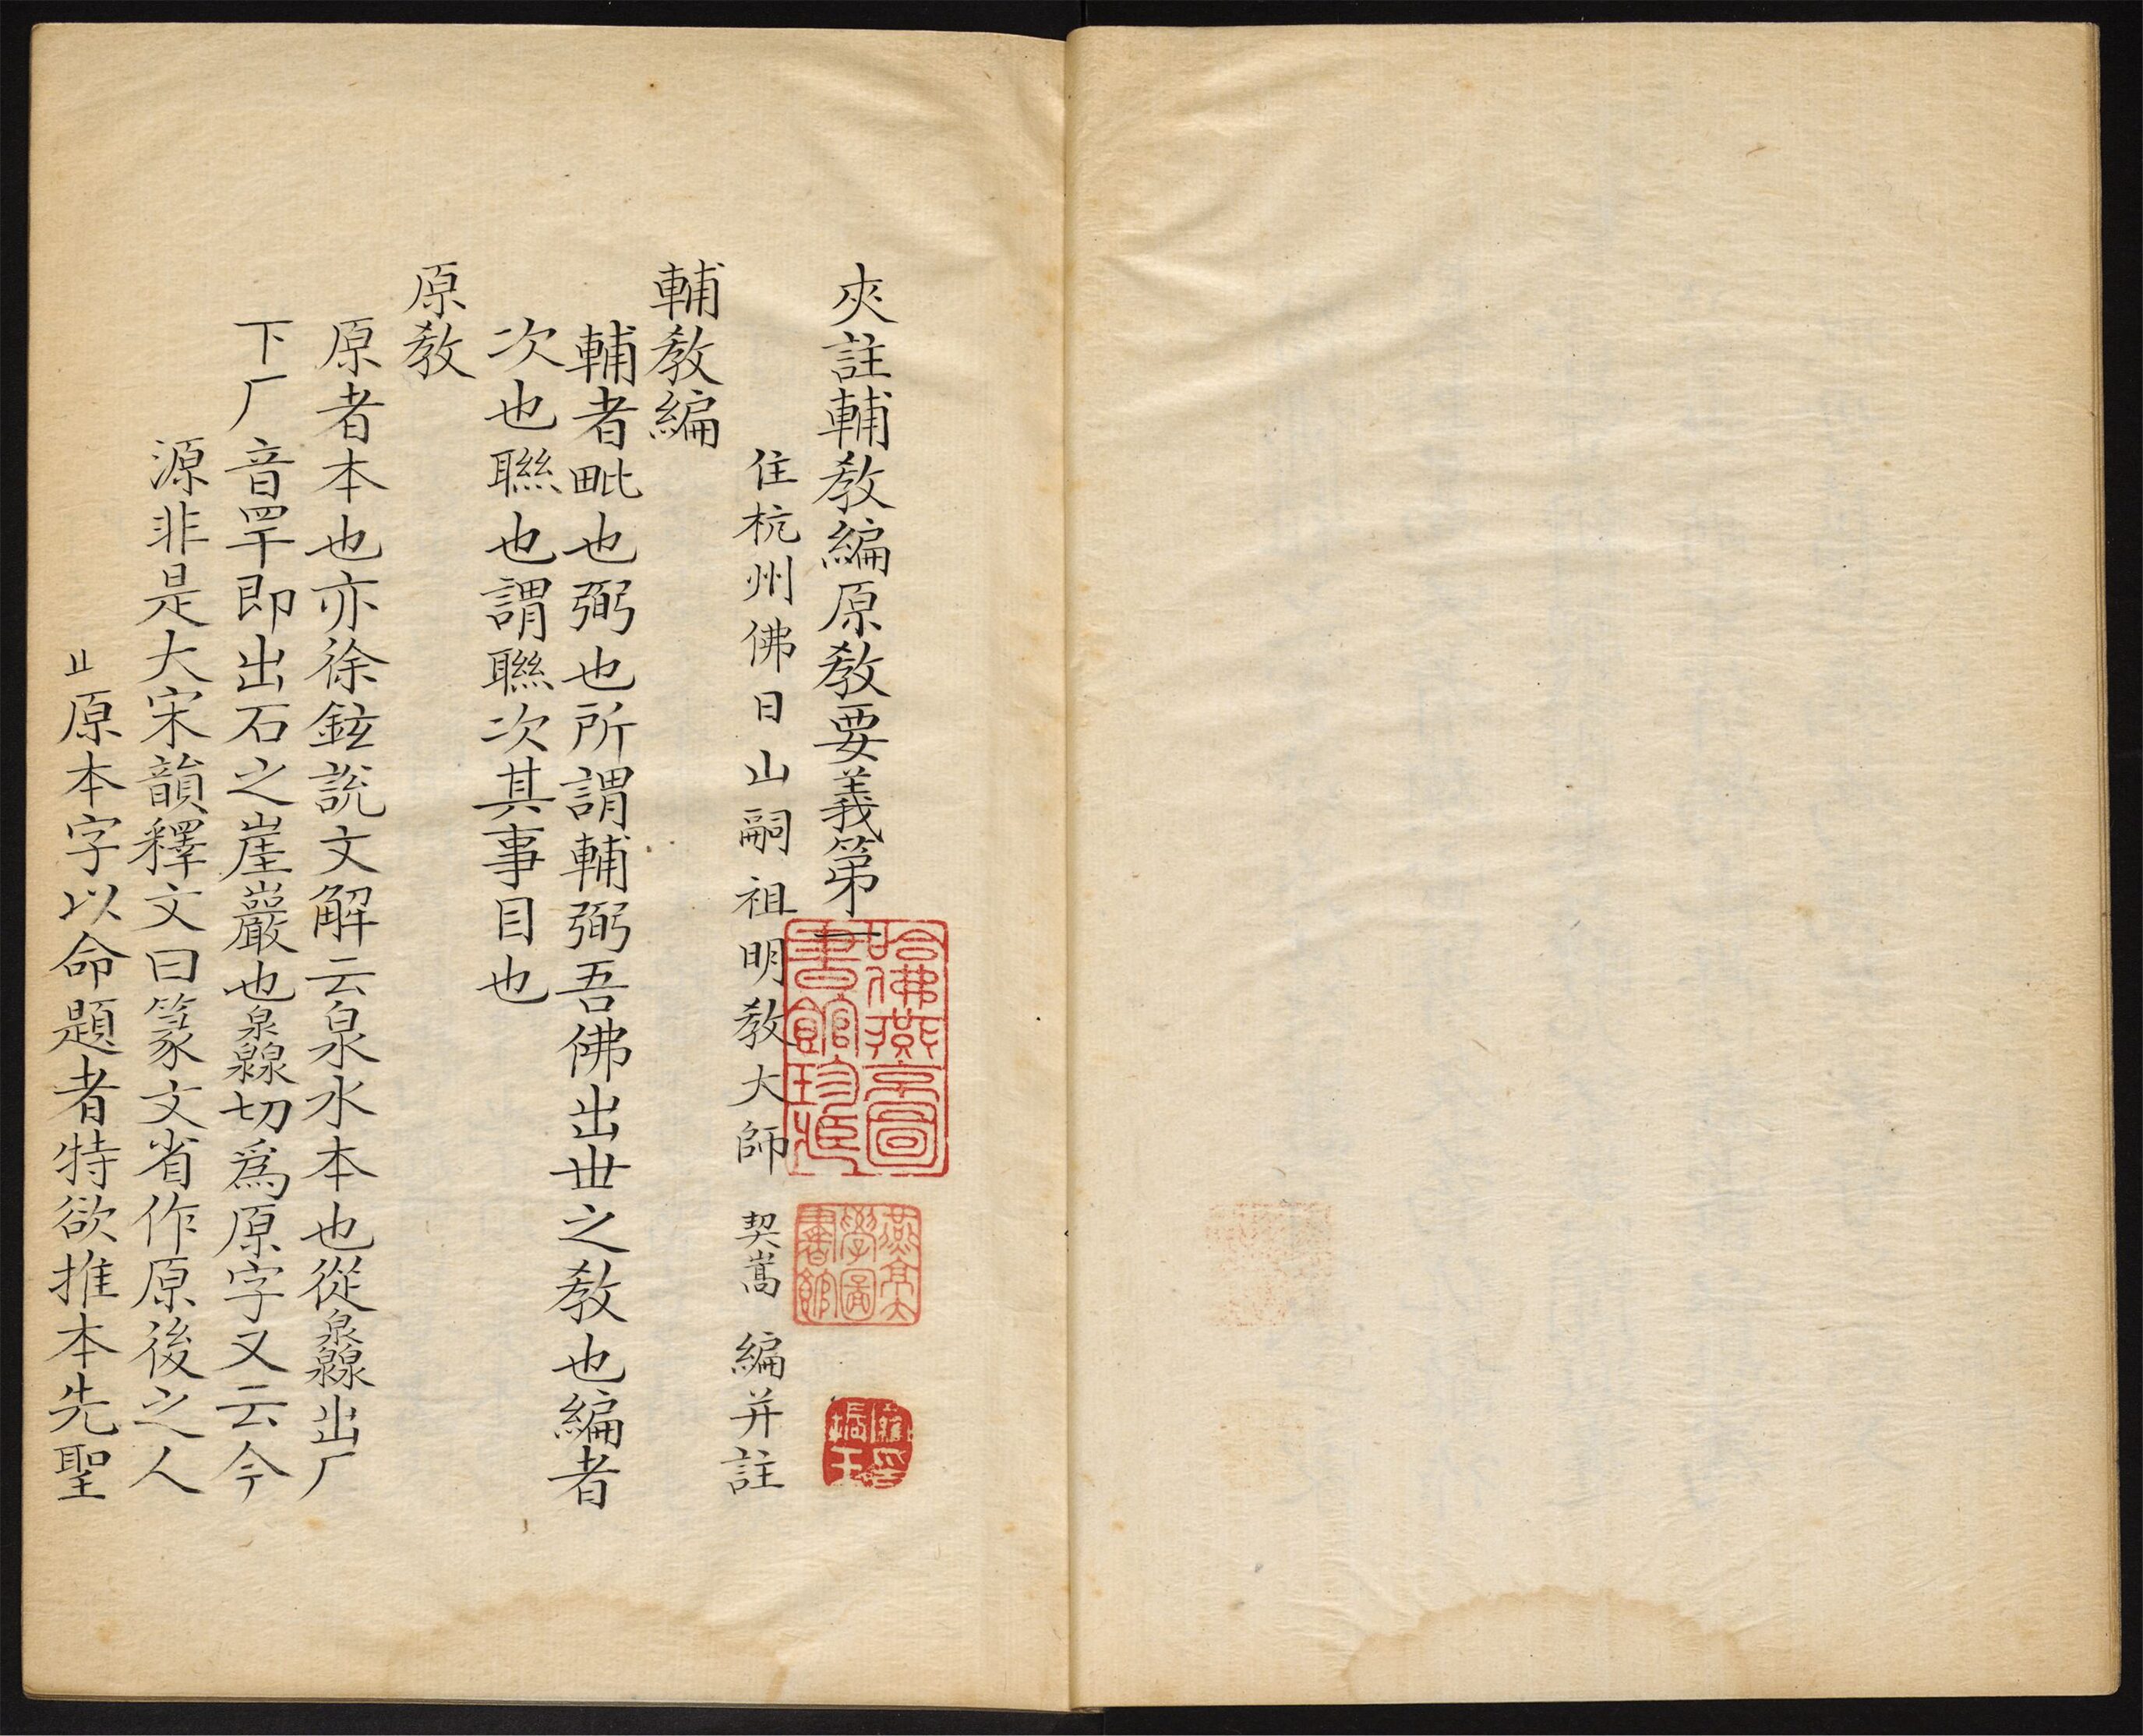 夾註輔教編原教要義第一
住杭州佛日山嗣祖明教大師 契嵩 編并註
輔教編
輔者毗也弼也所謂輔弼吾佛出世之教也編者
次也聯也謂聯次其事目也
原教
原者本也亦徐鉉說文解云泉水本也從灥出厂
下厂音罕即出石之崖巖也灥切爲原字又云今
源非是大宋韻釋文曰篆文省作原後之人
止原本字以命題者特欲推本先聖
哈佛燕京圖
書館珍藏
燕京大
學圖
書館